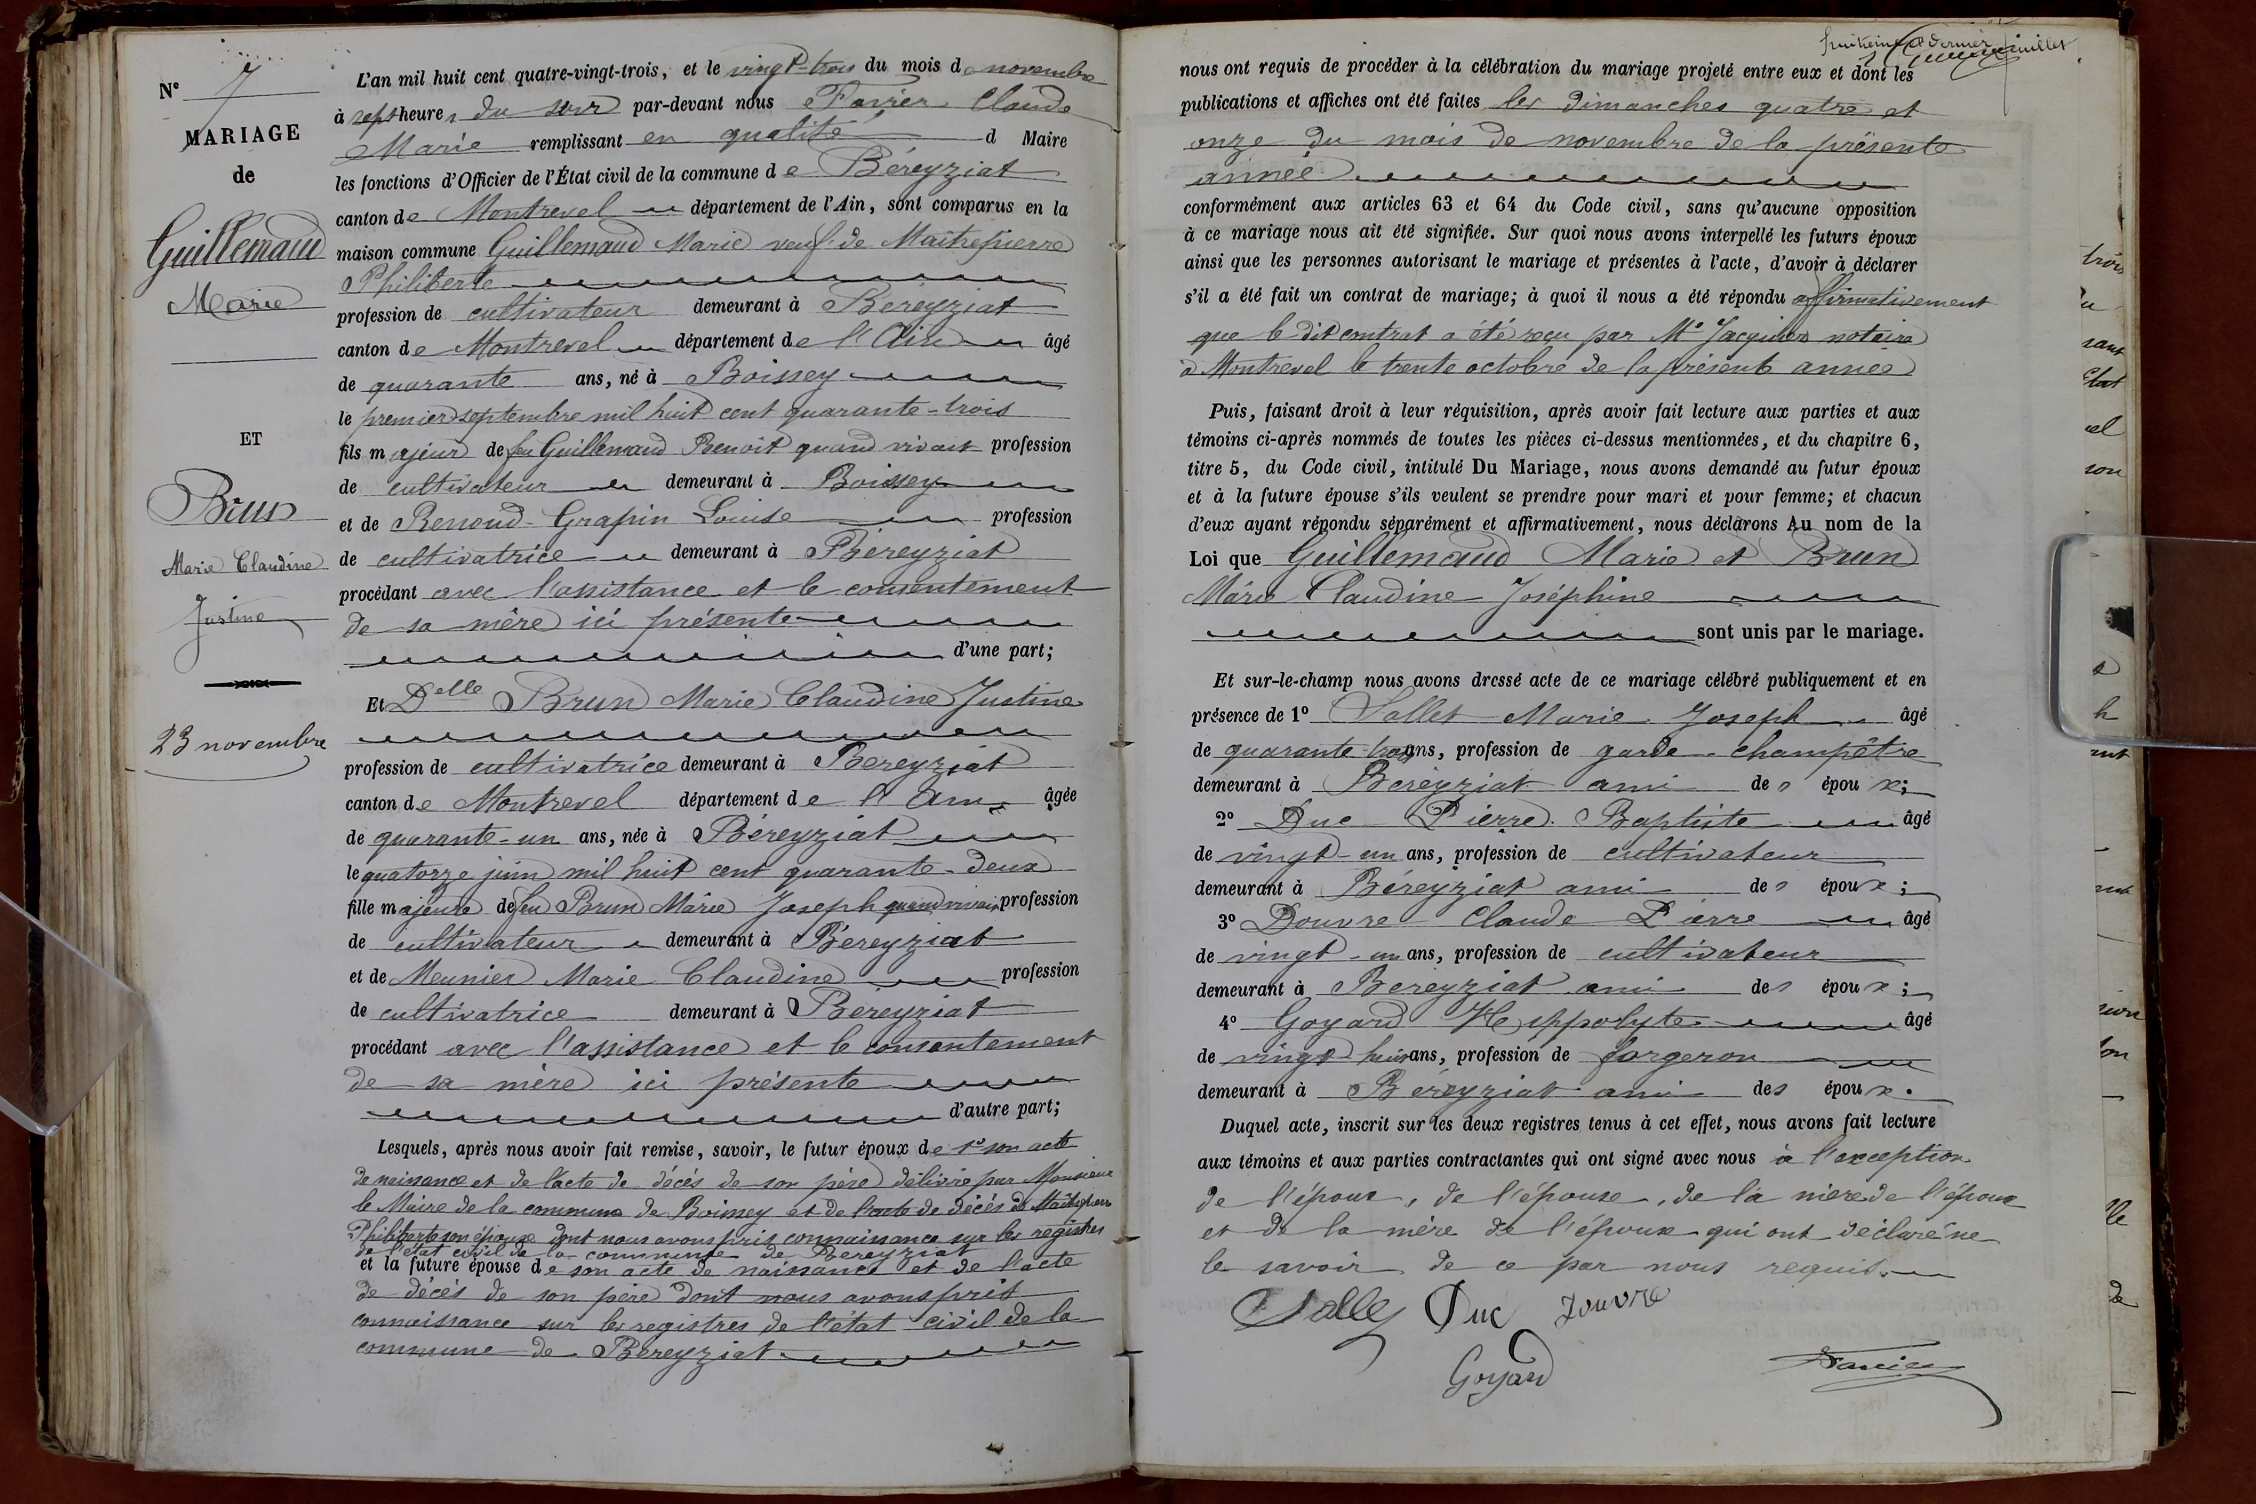 N° 7
MARIAGE
de
Guillemaud
Marie
ET
Brun
Marie Claudine
Justine
23 novembre
L'an mil huit cent quatre-vingt-trois, et le vingt-trois du mois de novembre
à sept heures du soir par-devant nous Favier Claude
Marie remplissant en qualité d Maire
les fonctions d'Officier de l'État civil de la commune de Béreyziat
canton de Montrevel département de l'Ain, sont comparus en la
maison commune Guillemaud Marie veuf de Maitrepierre
Philiberte
profession de cultivateur demeurant à Béreyziat
canton de Montrevel département de l'Ain âgé
de quarante ans, né à Boissey
le premier septembre mil huit cent quarante-trois
fils majeur de feu Guillemaud Benoit quand vivait profession
de cultivateur demeurant à Boissey
et de Renoud-Grapin Louise profession
de cultivatrice demeurant à Béreyziat
procédant avec l'assistance et le consentement
de sa mère ici présente
d'une part;
Et Delle Brun Marie Claudine Justine
profession de cultivatrice demeurant à Béreyziat
canton de Montrevel département de l'Ain âgée
de quarante-un ans, née à Béreyziat
le quatorze juin mil huit cent quarante-deux
fille majeure de feu Brun Marie Joseph quand vivait profession
de cultivateur demeurant à Béreyziat
et de Meunier Marie Claudine profession
de cultivatrice demeurant à Béreyziat
procédant avec l'assistance et le consentement
de sa mère ici présente
d'autre part;
Lesquels, après nous avoir fait remise, savoir, le futur époux de 1° son acte
de naissance et de l'acte de décés de son père délivré par Monsieur
le Maire de la commune de Boissey et de l'acte de décés de Maitrepierre
Philiberte son épouse dont nous avons pris connaissance sur les registres
de l'état civil de la commune de Béreyziat
et la future épouse de son acte de naissance et de l'acte
de décés de son père dont nous avons pris
connaissance sur les registres de l'état civil de la
commune de Béreyziat
nous ont requis de procéder à la célébration du mariage projeté entre eux et dont les
publications et affiches ont été faites les dimanches quatre et
onze du mois de novembre de la présente
année
conformément aux articles 63 et 64 du Code civil, sans qu'aucune opposition
à ce mariage nous ait été signifiée. Sur quoi nous avons interpellé les futurs époux
ainsi que les personnes autorisant le mariage et présentes à l'acte, d'avoir à déclarer
s'il a été fait un contrat de mariage; à quoi il nous a été répondu affirmativement
que le dit contrat a été reçu par Me notaire
à Montrevel le trente octobre de la présente année
Puis, faisant droit à leur réquisition, après avoir fait lecture aux parties et aux
témoins ci-après nommés de toutes les pièces ci-dessus mentionnées, et du chapitre 6,
titre 5, du Code civil, intitulé Du Mariage, nous avons demandé au futur époux
et à la future épouse s'ils veulent se prendre pour mari et pour femme; et chacun
d'eux ayant répondu séparément et affirmativement, nous déclarons Au nom de la
Loi que Guillemaud Marie et Brun
Marie Claudine Joséphine
sont unis par le mariage.
Et sur-le-champ nous avons dressé acte de ce mariage célébré publiquement et en
présence de 1° Sallet Marie Joseph âgé
de quarante-trois ans, profession de garde-champêtre
demeurant à Béreyziat ami des époux;
2° Duc Pierre Baptiste âgé
de vingt-un ans, profession de cultivateur
demeurant à Béreyziat ami des époux;
3° Douvre Claude Pierre âgé
de vingt-un ans, profession de cultivateur
demeurant à Béreyziat ami des époux;
4° Goyard Hyppolyte âgé
de vingt-huit ans, profession de forgeron
demeurant à Béreyziat ami des époux.
Duquel acte, inscrit sur les deux registres tenus à cet effet, nous avons fait lecture
aux témoins et aux parties contractantes qui ont signé avec nous à l'exception
de l'époux, de l'épouse, de la mère de l'époux
et de la mère de l'épouse qui ont déclaré ne
le savoir de ce par nous requis.
Duc
Goyard
Favier